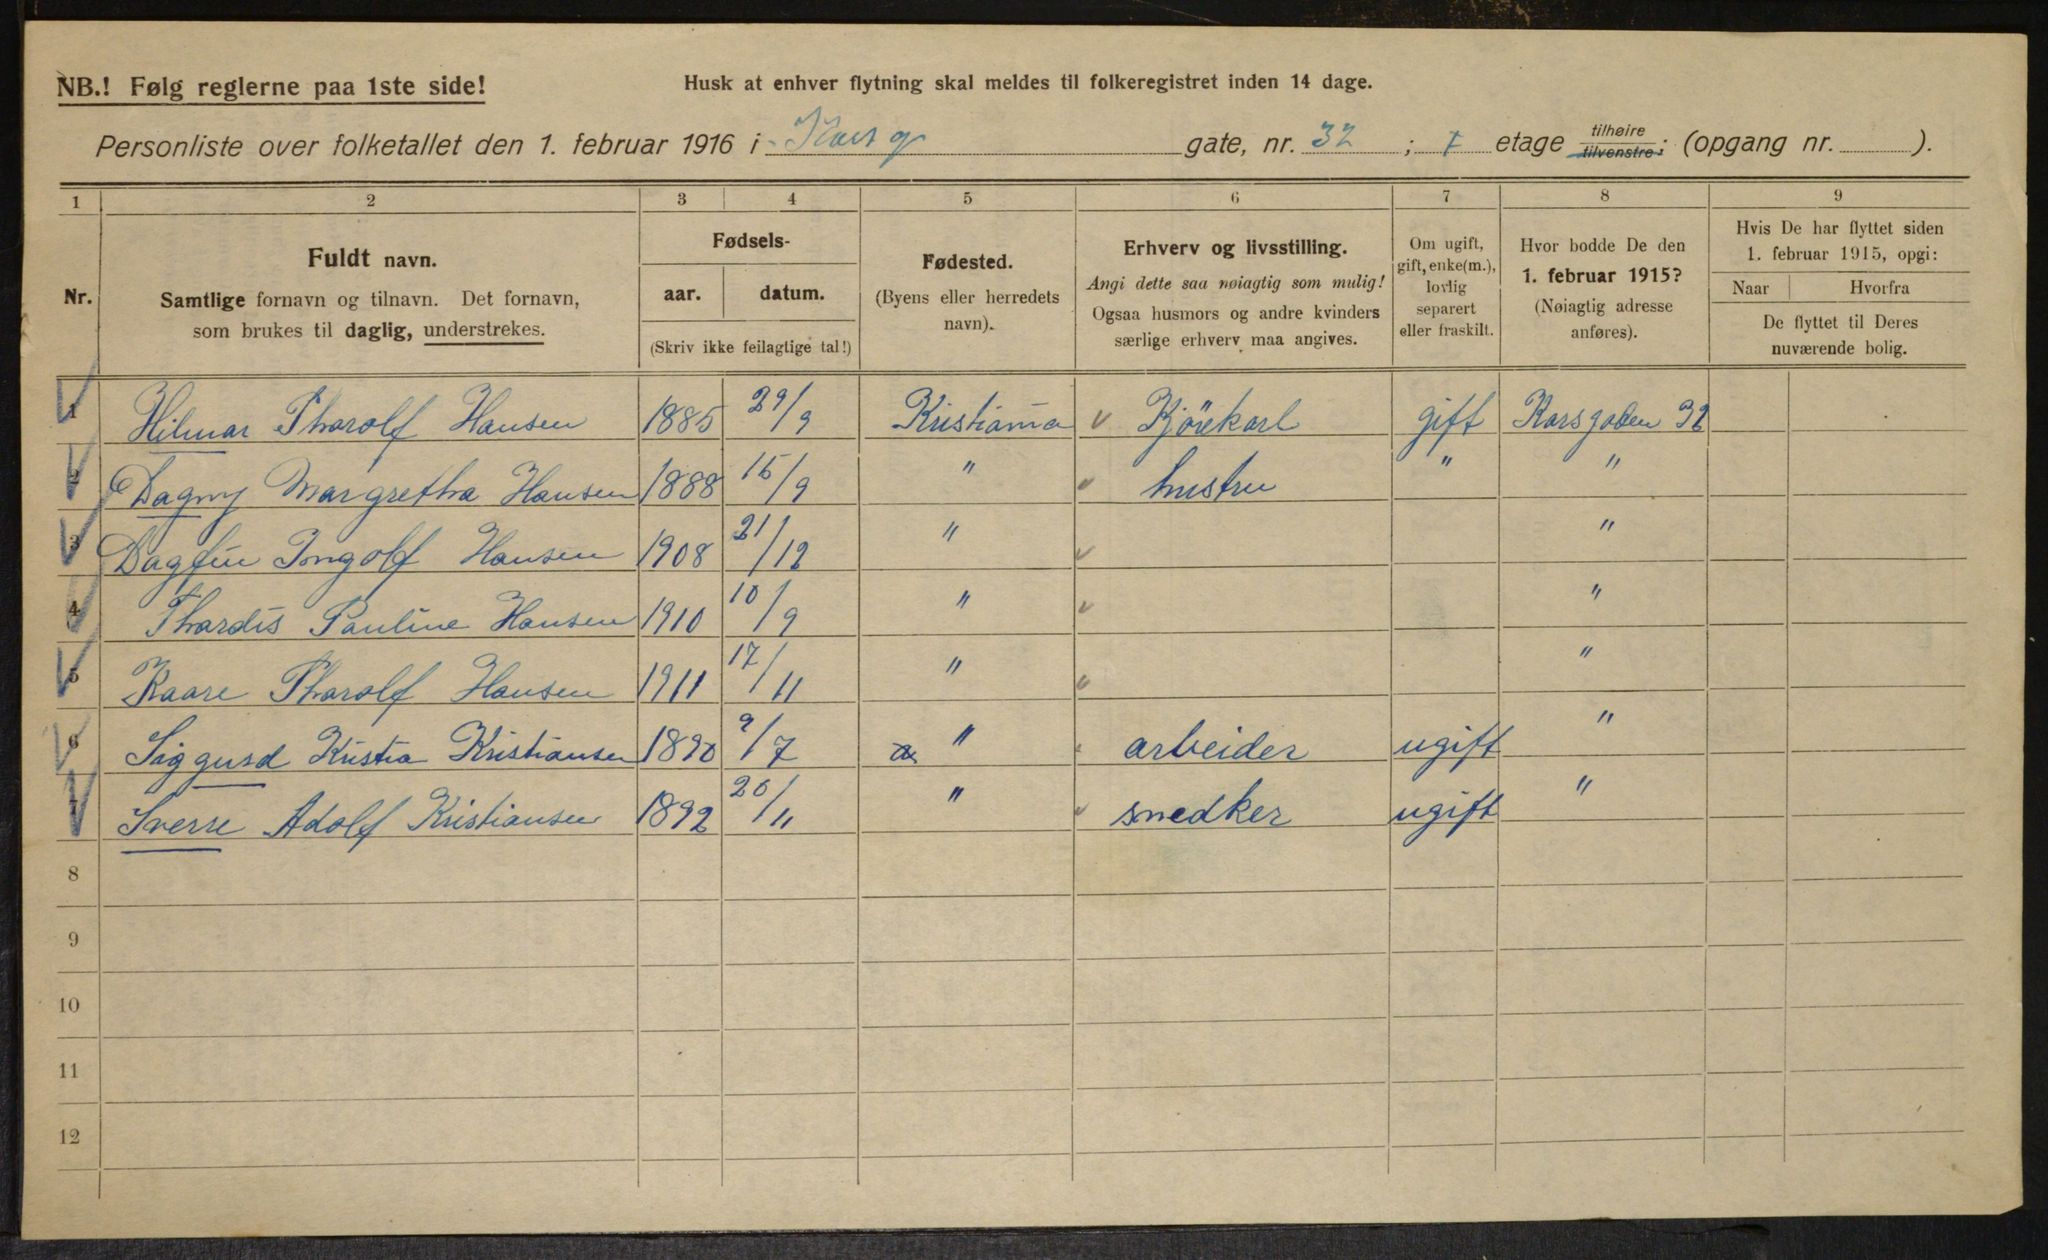 NB.! Følg reglerne paa 1ste side!
Husk at enhver flytning skal meldes til folkeregistret inden 14 dage.
Personliste over folketallet den 1. februar 1916 i Kors g gate, nr. 32 ; I etage tilhøire tilvenstre: (opgang nr. ).
1 2 3 4 5 6 7 8 9
Nr.
Fuldt navn.
Samtlige fornavn og tilnavn. Det fornavn,
som brukes til daglig, understrekes.
Fødsels-
aar. datum.
(Skriv ikke feilagtige tal!)
Fødested.
(Byens eller herredets
navn).
Erhverv og livsstilling.
Angi dette saa nøiagtig som mulig!
Ogsaa husmors og andre kvinders
særlige erhverv maa angives.
Om ugift,
gift, enke(m.),
lovlig
separert
eller fraskilt.
Hvor bodde De den
1. februar 1915?
(Nøiagtig adresse
anføres).
Hvis De har flyttet siden
1. februar 1915, opgi:
Naar Hvorfra
De flyttet til Deres
nuværende bolig.
1 Hilmar Tharolf Hansen 1885 29/9 Kristiania Kjørekarl gift Korsgaden 32
2 Dagny Margretha Hansen 1888 15/9 " hustru " "
3 Dagfin Ingolf Hansen 1908 21/12 " "
4 Thardis Pauline Hansen 1910 10/9 " "
5 Kaare Tharolf Hansen 1911 17/11 " "
6 Siggurd Kristia Kristiansen 1890 9/7 " arbeider ugift "
7 Sverre Adolf Kristiansen 1892 20/11 " snedker ugift "
8
9
10
11
12